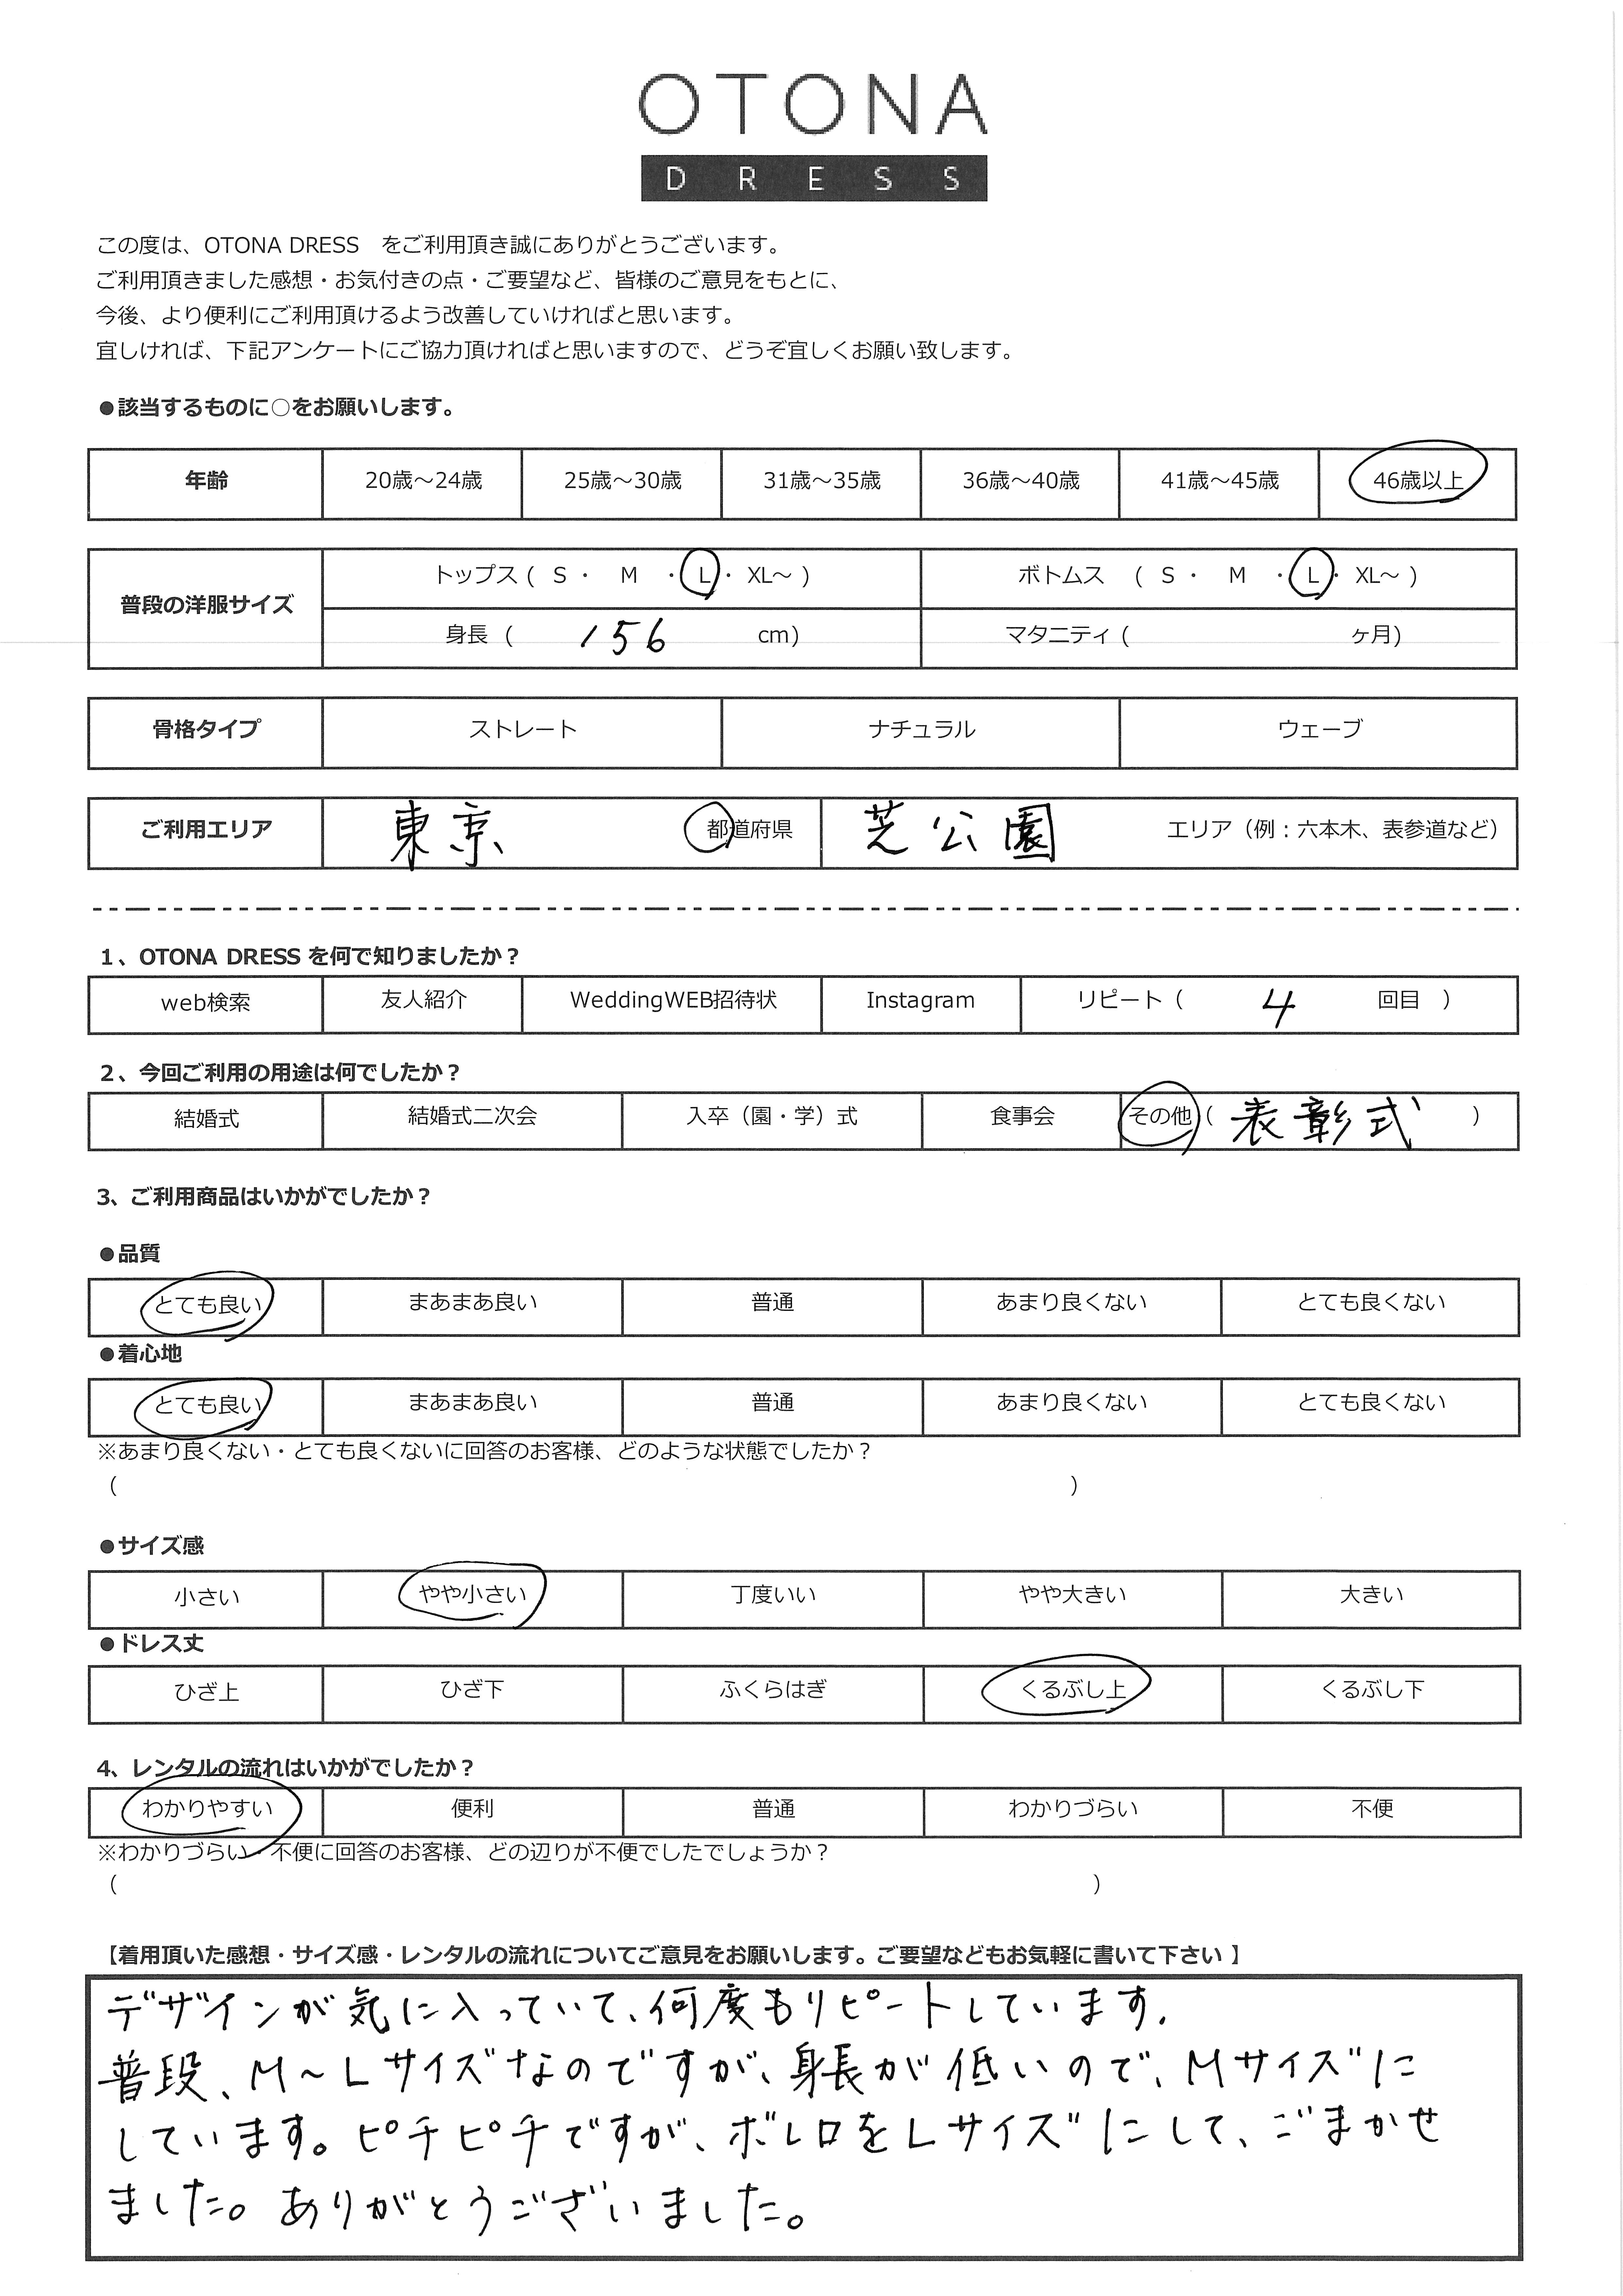 OTONA
DRESS
この度は、OTONA DRESS　をご利用頂き誠にありがとうございます。
ご利用頂きました感想・お気付きの点・ご要望など、皆様のご意見をもとに、
今後、より便利にご利用頂けるよう改善していければと思います。
宜しければ、下記アンケートにご協力頂ければと思いますので、どうぞ宜しくお願い致します。
●該当するものに○をお願いします。
年齢 20歳～24歳 25歳～30歳 31歳～35歳 36歳～40歳 41歳～45歳 46歳以上
普段の洋服サイズ トップス ( S ・ M ・ L ・ XL～ ) ボトムス ( S ・ M ・ L ・ XL～ )
身長 ( 156 cm) マタニティ ( ヶ月)
骨格タイプ ストレート ナチュラル ウェーブ
ご利用エリア 東京 都道府県 芝公園 エリア（例：六本木、表参道など）
1、OTONA DRESS を何で知りましたか？
web検索 友人紹介 WeddingWEB招待状 Instagram リピート（ 4 回目 ）
2、今回ご利用の用途は何でしたか？
結婚式 結婚式二次会 入卒（園・学）式 食事会 その他（ 表彰式 ）
3、ご利用商品はいかがでしたか？
●品質
とても良い まあまあ良い 普通 あまり良くない とても良くない
●着心地
とても良い まあまあ良い 普通 あまり良くない とても良くない
※あまり良くない・とても良くないに回答のお客様、どのような状態でしたか？
（ ）
●サイズ感
小さい やや小さい 丁度いい やや大きい 大きい
●ドレス丈
ひざ上 ひざ下 ふくらはぎ くるぶし上 くるぶし下
4、レンタルの流れはいかがでしたか？
わかりやすい 便利 普通 わかりづらい 不便
※わかりづらい・不便に回答のお客様、どの辺りが不便でしたでしょうか？
（ ）
【着用頂いた感想・サイズ感・レンタルの流れについてご意見をお願いします。ご要望などもお気軽に書いて下さい 】
デザインが気に入っていて、何度もリピートしています.
普段、M～Lサイズなのですが、身長が低いので、Mサイズに
しています。ピチピチですが、ボレロをLサイズにして、ごまかせ
ました。ありがとうございました。